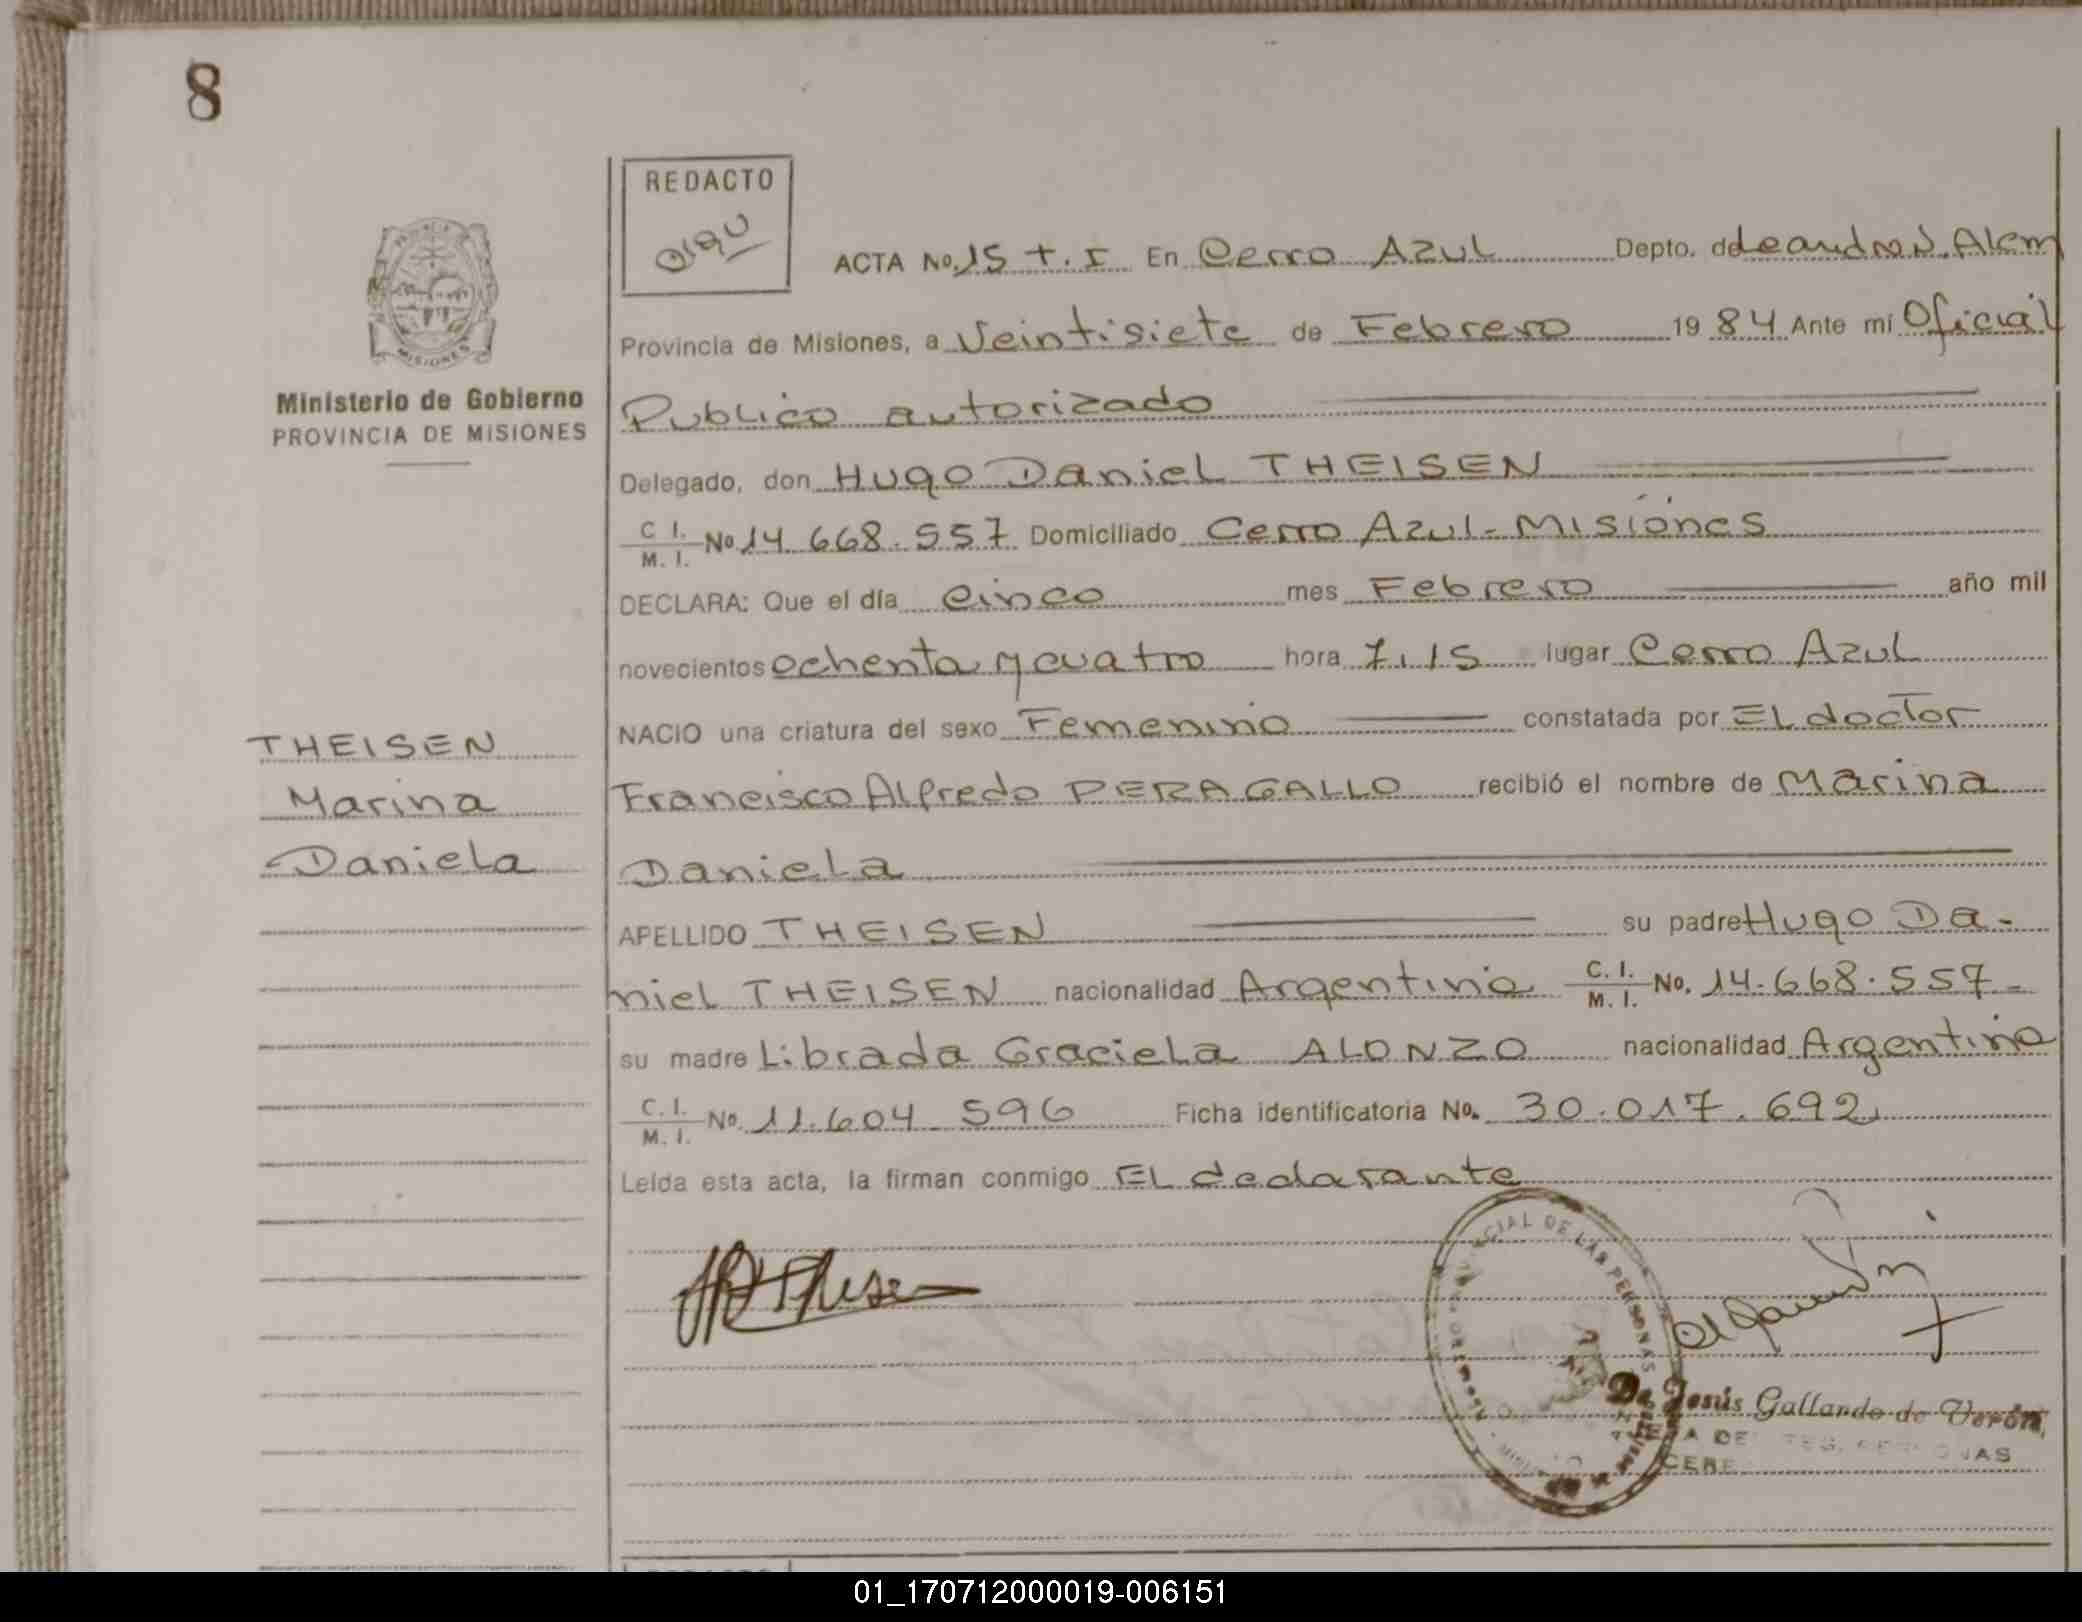 8
REDACTO
ACTA No. 15 t. I En Cerro Azul Depto. de Leandro N. Alem
Provincia de Misiones, a Veintisiete de Febrero 1984 Ante mí Oficial
Publico autorizado
Delegado, don Hugo Daniel THEISEN
C. I. / M. I. No 14.668.557 Domiciliado Cerro Azul - Misiones
DECLARA: Que el día cinco mes Febrero año mil
novecientos ochenta y cuatro hora 7,15 lugar Cerro Azul
NACIO una criatura del sexo Femenino constatada por El doctor
Francisco Alfredo PERAGALLO recibió el nombre de Marina
Daniela
APELLIDO THEISEN su padre Hugo Da-
niel THEISEN nacionalidad Argentina C. I. / M. I. No. 14.668.557-
su madre Librada Graciela ALONZO nacionalidad Argentina
C. I. / M. I. No. 11.604.596 Ficha identificatoria No. 30.017.692
Leída esta acta, la firman conmigo El declarante
MISIONES
Ministerio de Gobierno
PROVINCIA DE MISIONES
THEISEN
Marina
Daniela
Theisen
CIAL DE LAS PERSONAS
De Jesús Gallardo de Verón
01_170712000019-006151